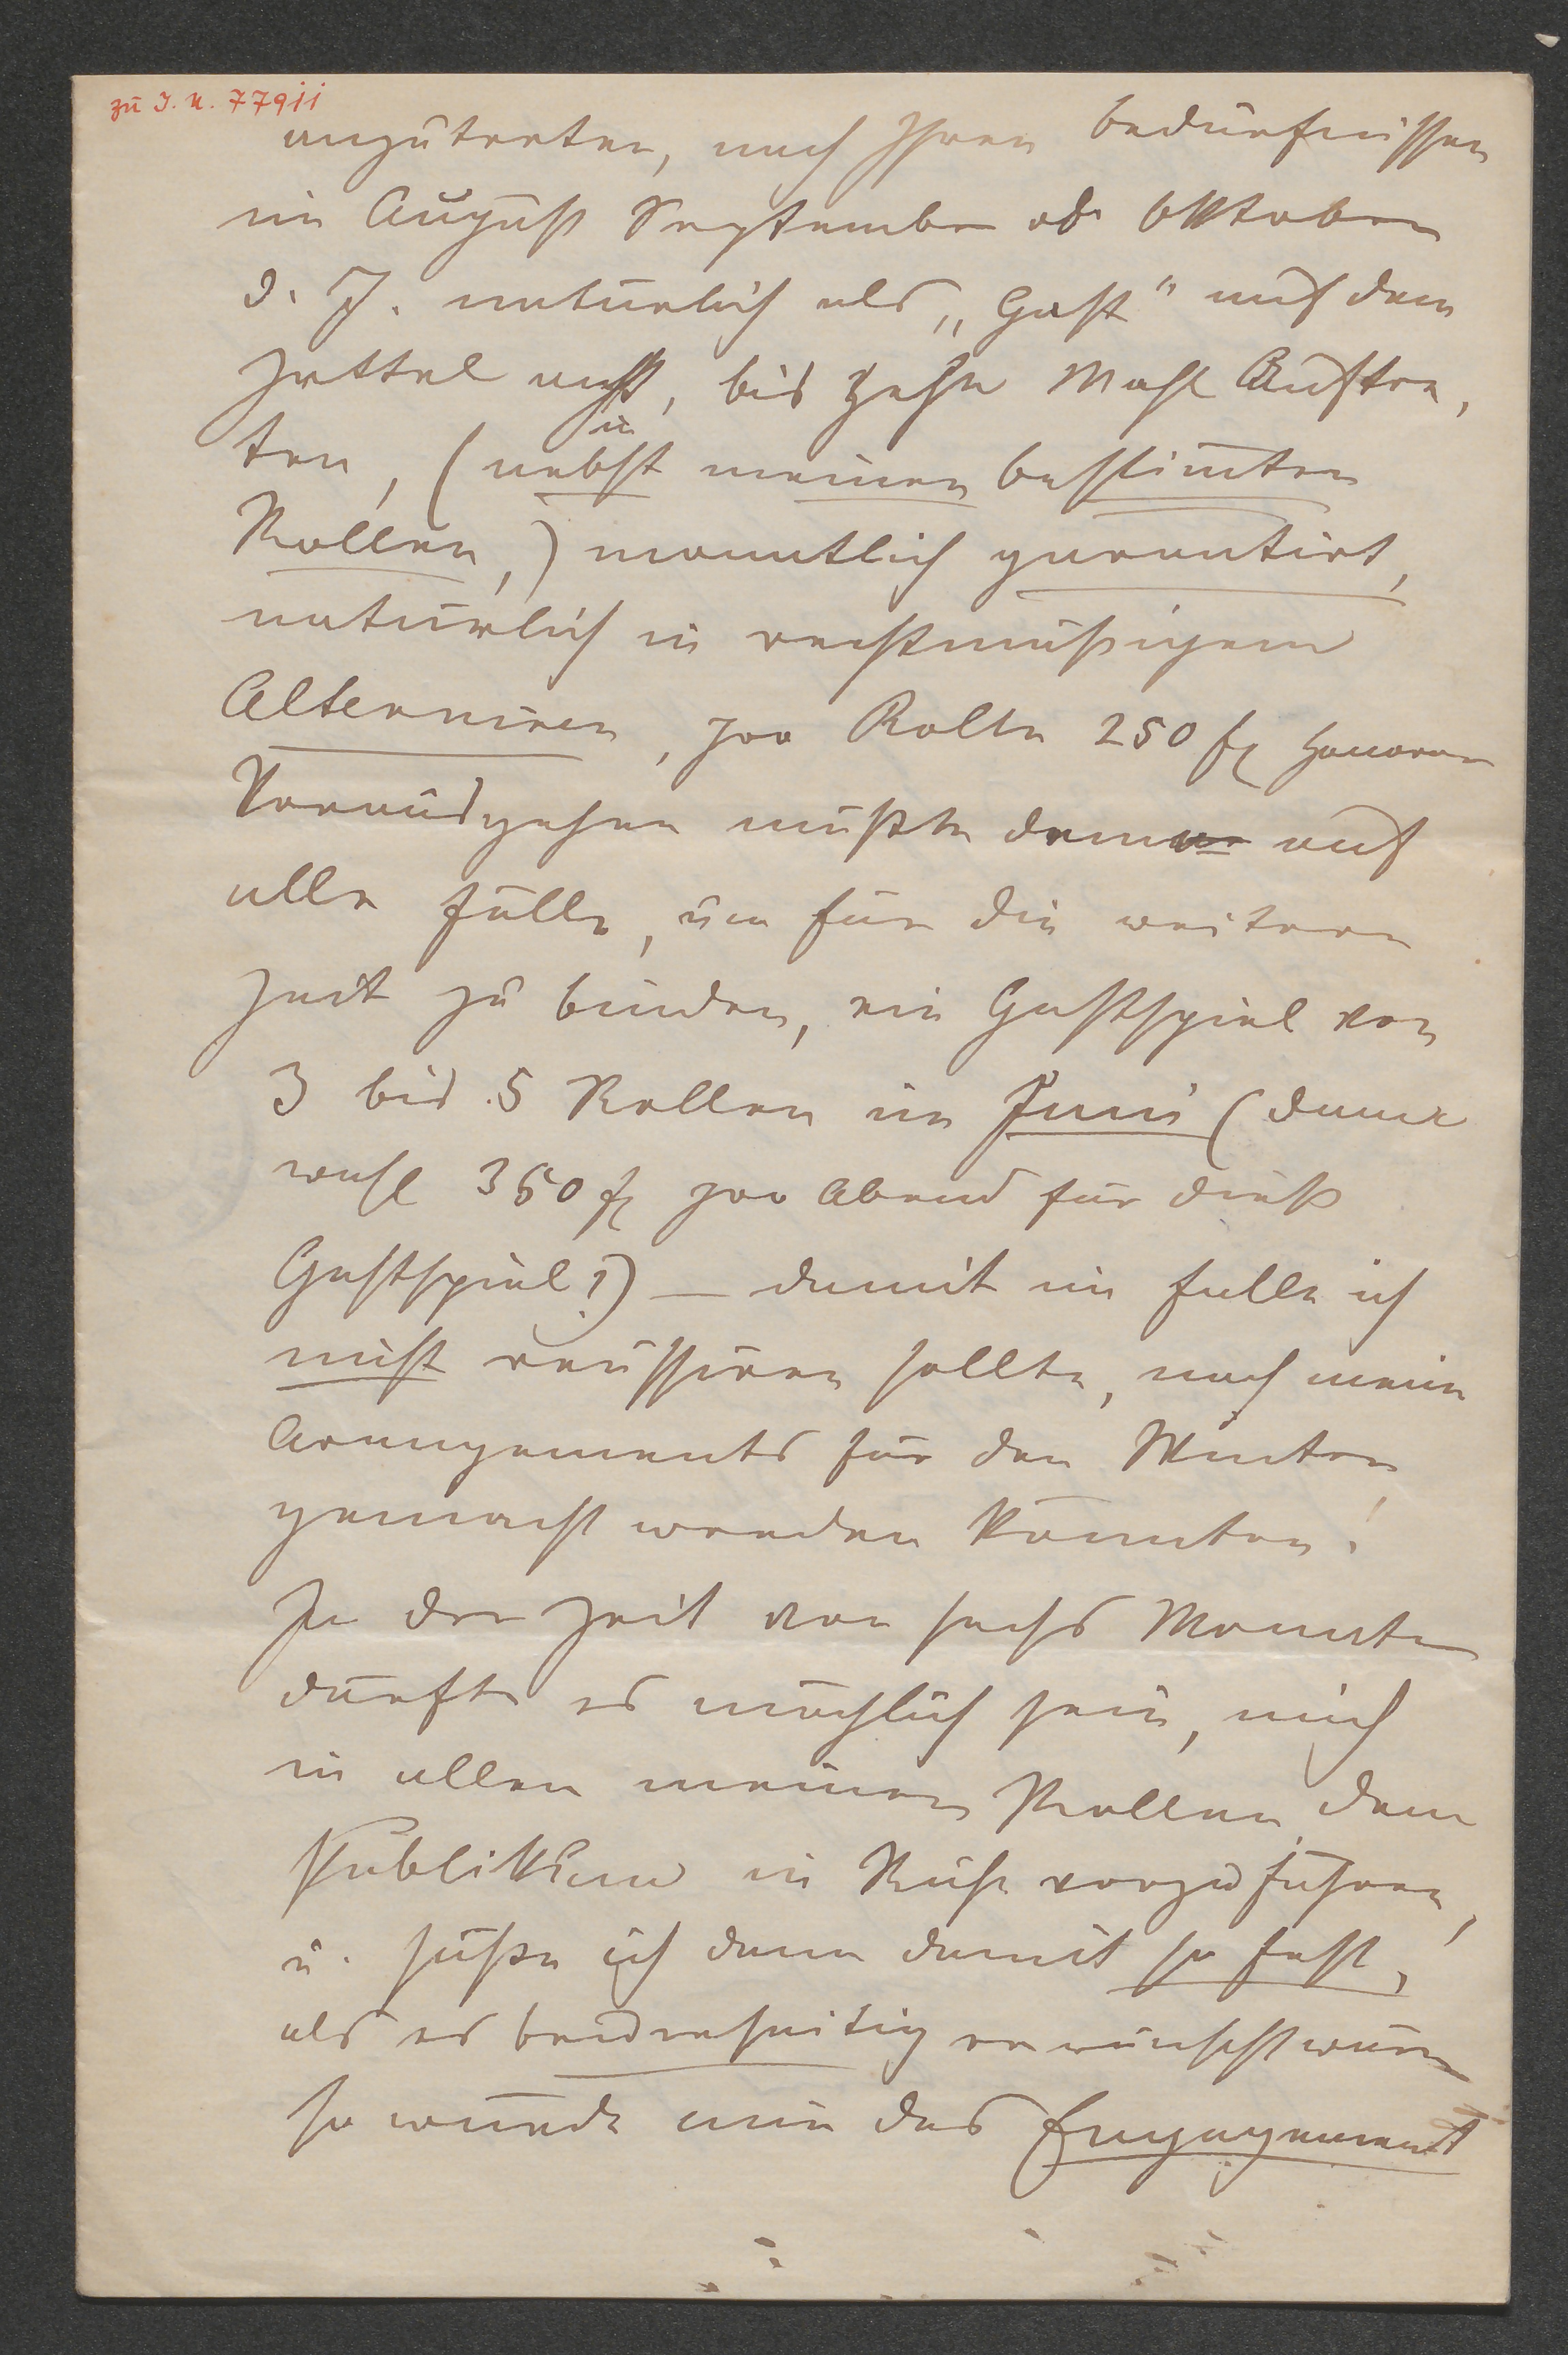 zu I. N. 77911
anzutreten, nach Ihren Bedürfnissen
im August September od. Oktober
d. J. natürlich als „Gast" auf dem
Zettel acht, bis zehn Mahl Auftre,
ten, (u. nebst meinen bestimten
Rollen,) monatlich garantirt,
natürlich in rechtmäßigem
Alterniren, pro Rolle 250 fl Honorar
Vorausgehen müßte dem auf
alle Fälle, um für die weitere
Zeit zu binden, ein Gastspiel von
3 bis 5 Rollen im Juni (dann
wohl 350 fl pro Abend für dieß
Gastspiel?) — damit im Falle ich
nicht reussiren sollte, noch meine
Arangements für den Winter
gemacht werden könnten!
In der Zeit von sechs Monate
dürfte es möchlich sein, mich
in allen meinen Rollen dem
Publikum in Ruhe vorzuführen,
u. säße ich dann damit so fest,
als es beiderseitig erwünscht wäre
so würde mir das Engagement